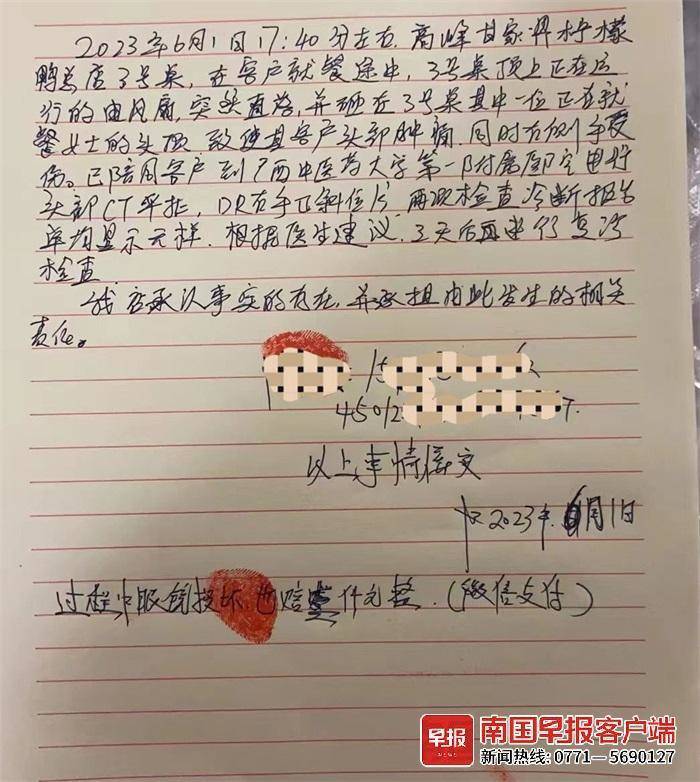 2023年6月1日17:40分左右,高峰甘家界柠檬
鸭总店3号桌,在客户就餐途中,3号桌顶上正在运
行的电风扇,突然直落,并砸在3号桌其中一位正在就
餐女士的头顶 致使其客户头部肿痛.同时右侧手受
伤。已陪同客户到广西中医药大学第一附属医院进行
头部CT平扫,DR右手正斜位片 两项检查诊断报告
单均显示无样.根据医生建议.三天后再进行复诊
检查.
我店承认事实的存在,并承担由此发生的相关
责任。
15
4501
以上事情属实
2023年.6月1日
过程中眼镜损坏 已赔 仟元整.(微信支付)
早报 南国早报客户端
新闻热线:0771—5690127